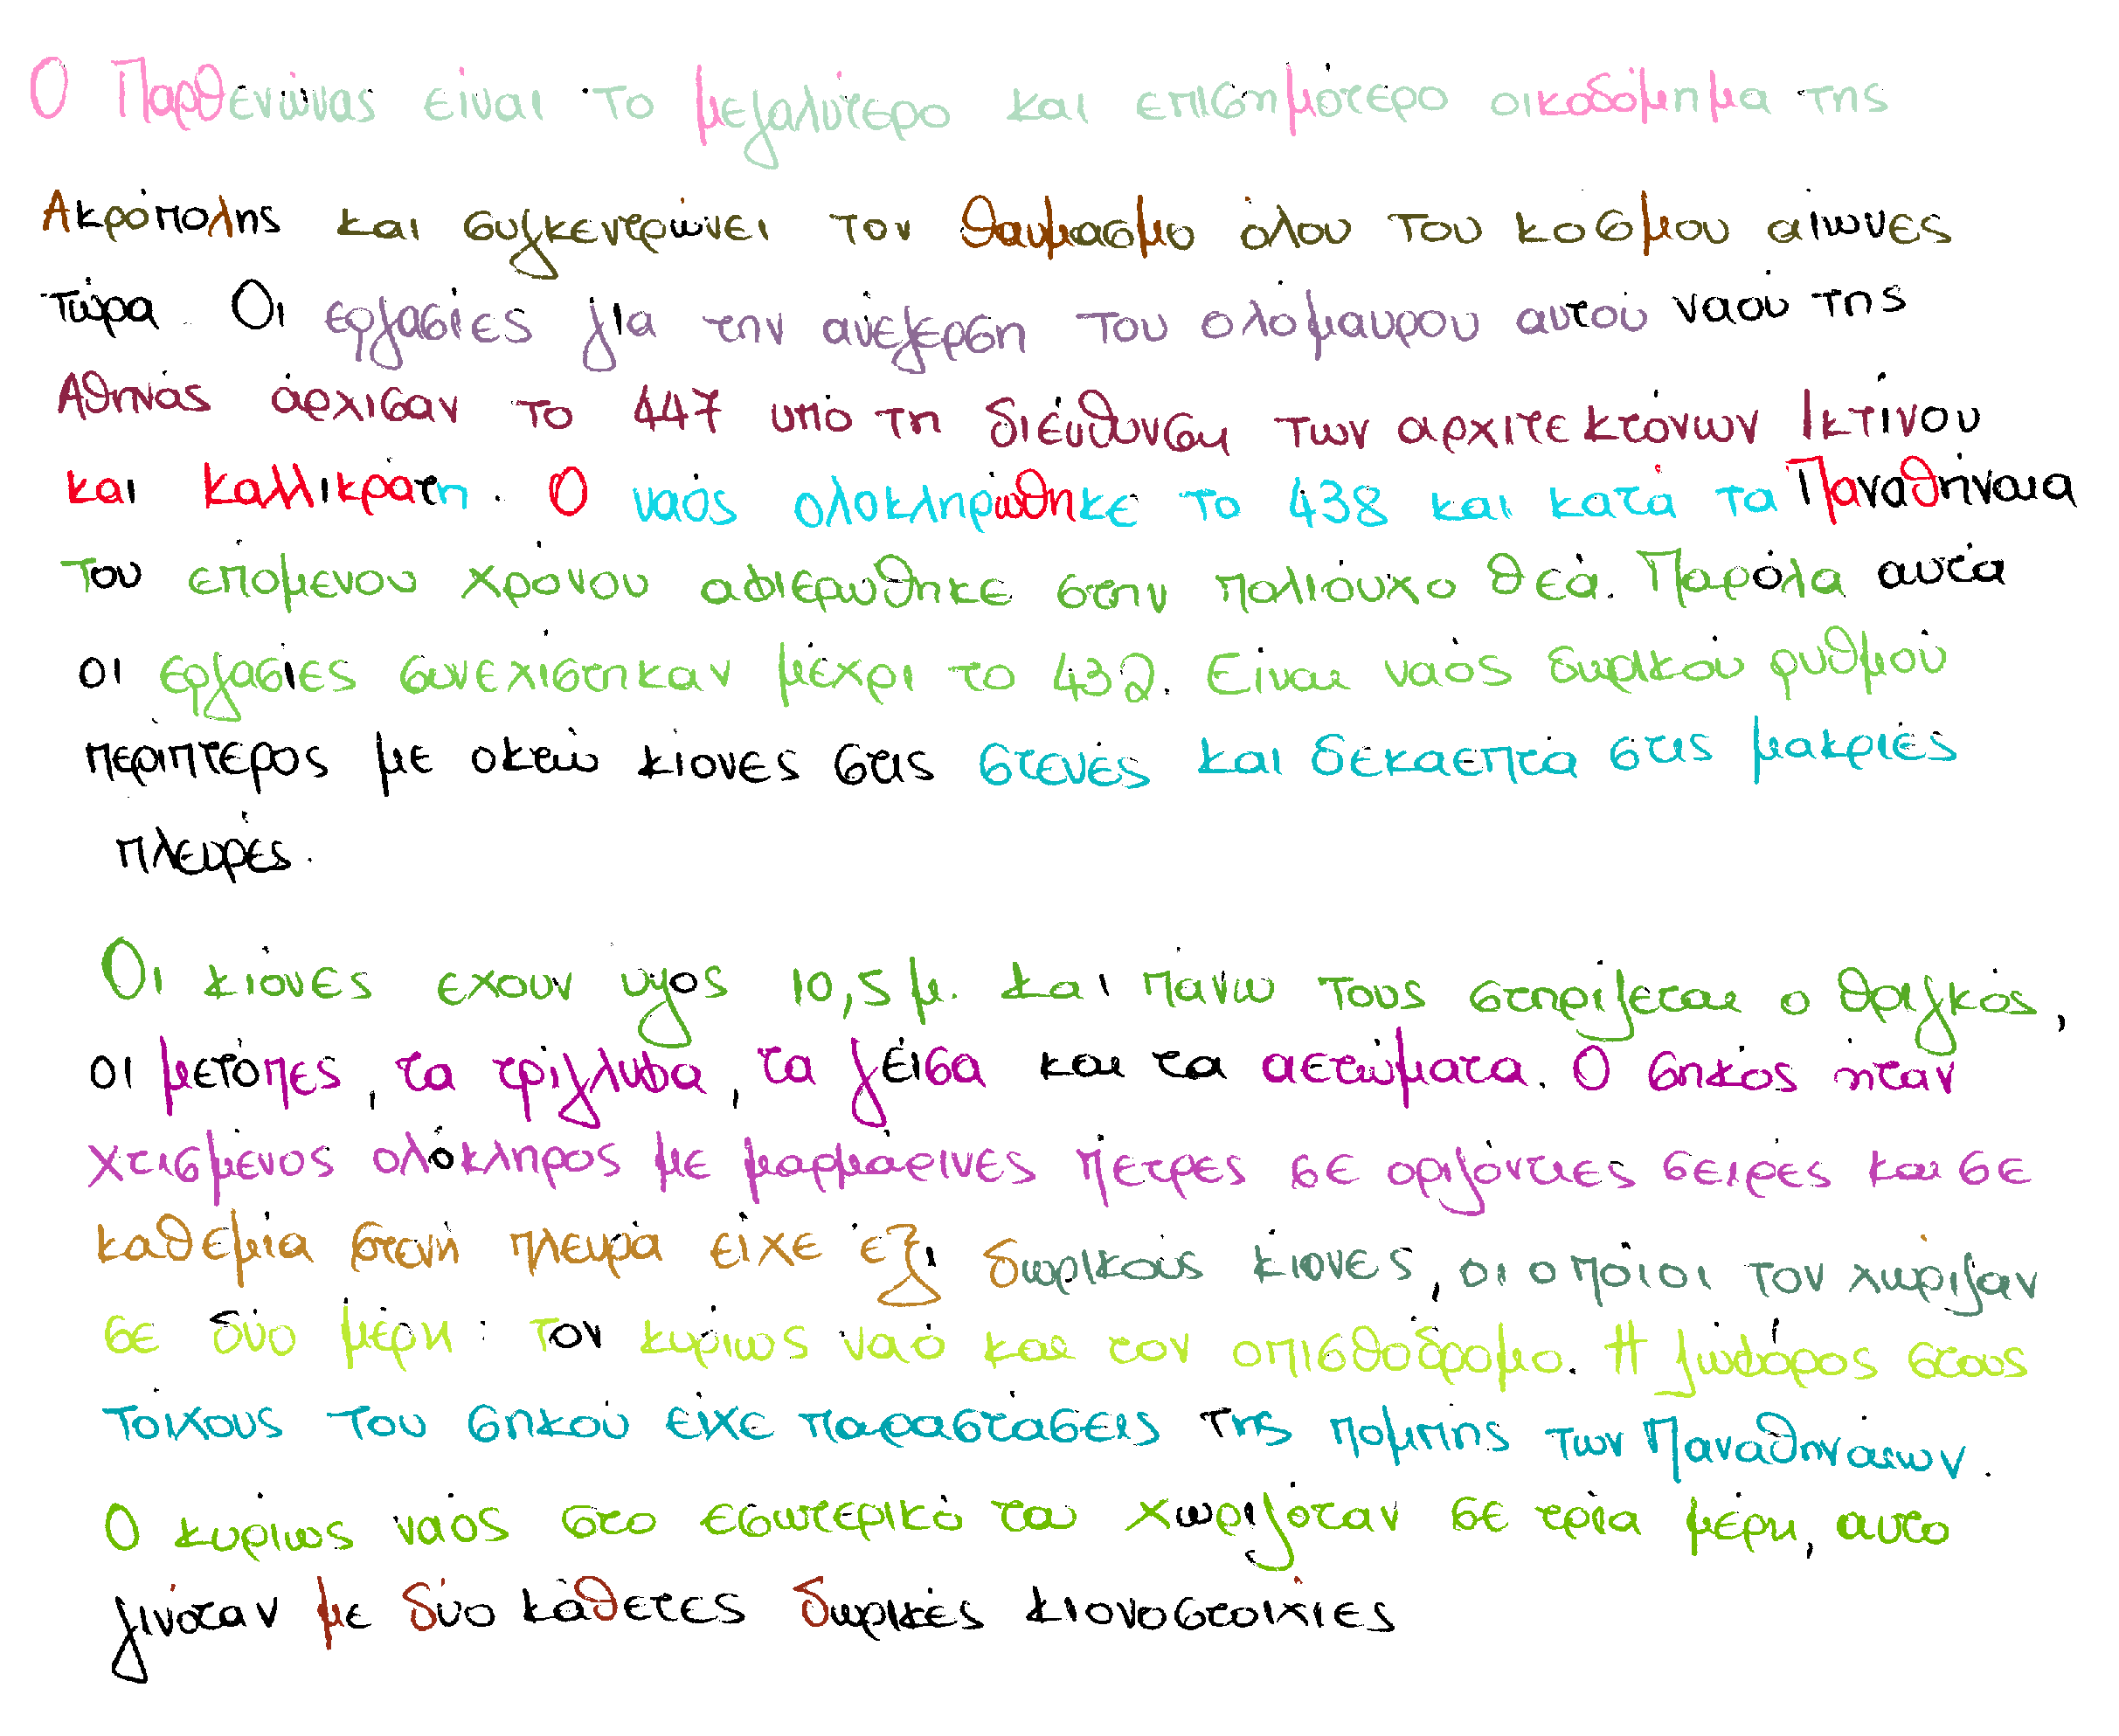 Ο Παρθενώνας είναι το μεγαλύτερο και επισημότερο οικοδόμημα της
Ακρόπολης και συγκεντρώνει τον θαυμασμο όλου του κόσμου αιώνες
τώρα. Οι εργασίες για την ανέγερση του ολόμαυρου αυτού ναού της
Αθηνάς άρχισαν το 447 υπό τη διέυθυνση των αρχιτεκτόνων Ικτίνου
και Καλλικράτη. Ο ναός ολοκληρώθηκε το 438 και κατά τα Παναθήναια
του επόμενου χρόνου αφιερώθηκε στην πολιούχο θεά. Παρόλα αυτά
οι εργασίες συνεχίστηκαν μέχρι το 432. Είναι ναός δωρικού ρυθμού
περίπτερος με οκτώ κίονες στις στενές και δεκαεπτά στις μακριές
πλευρές.
Οι κίονες έχουν ύψος 10,5 μ. και πάνω τους στηρίζεται ο θριγκός,
οι μετόπες, τα τρίγλυφα, τα γείσα και τα αετώματα. Ο σηκός ήταν
χτισμένος ολόκληρος με μαρμάρινες πέτρες σε οριζόντιες σειρές και σε
καθεμία στενή πλευρά είχε έξι δωρικούς κίονες, οι οποίοι τον χώριζαν
σε δύο μέρη: τον κυρίως ναό και τον οπισθόδρομο. Η ζωφόρος στους
τοίχους του σηκού είχε παραστάσεις της πομπής των Παναθηναίων.
Ο κυρίως ναός στο εσωτερικό του χωριζόταν σε τρία μέρη, αυτό
γινόταν με δύο κάθετες δωρικές κιονοστοιχίες